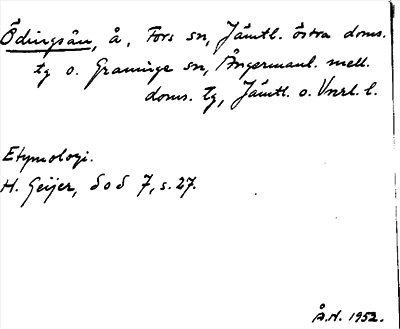 Ödingsån, å, Fors sn, Jämtl. östra doms.
tg o. Graninge sn, Ångermanl. mell.
doms. tg, Jämtl. o. Vnrl. l.
Etymologi.
H. Geijer, SoS 7, s. 27.
Å.N. 1952.